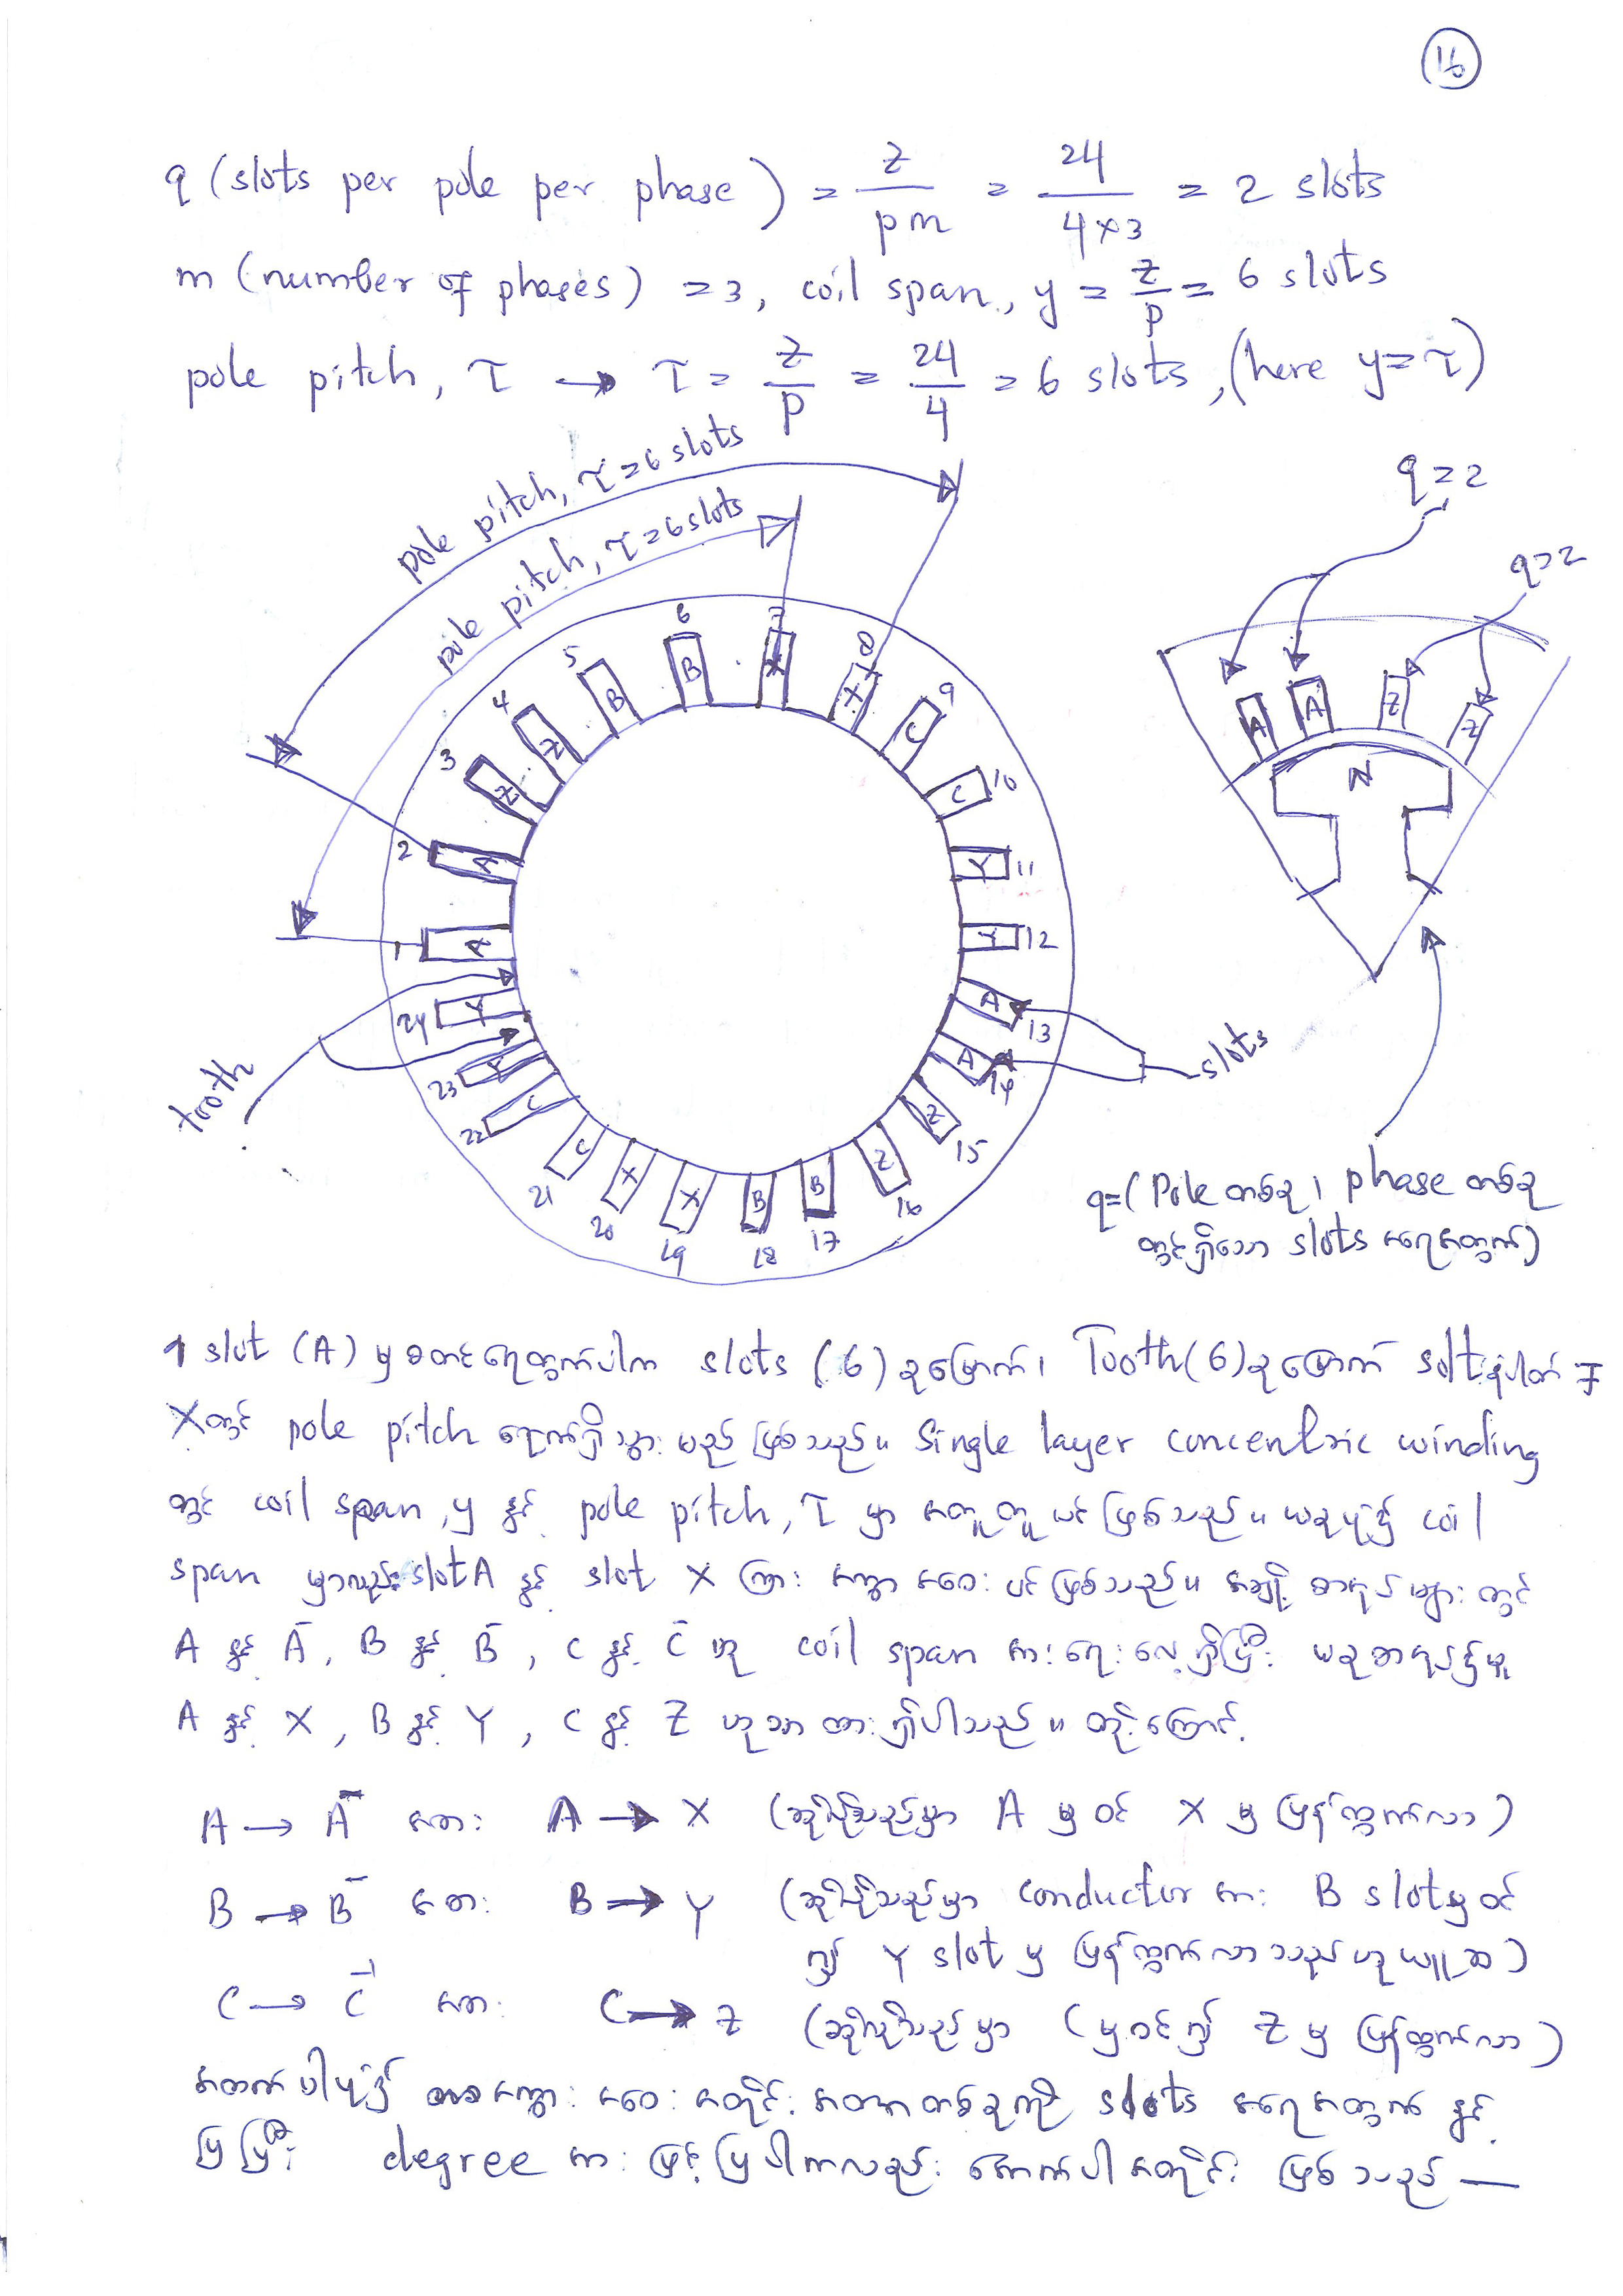 16
q (slots per pole per phase) = z / pm = 24 / 4×3 = 2 slots
m (number of phases) = 3, coil span, y = z / p = 6 slots
pole pitch, τ → τ = z / p = 24 / 4 = 6 slots, (here y = τ)
pole pitch, τ = 6 slots
pole pitch, τ = 6 slots
q = 2
q = 2
A A Z Z
N
1 A
2 A
3 Z
4 Z
5 B
6 B
7 X
8 X
9 C
10 C
11 Y
12 Y
13 A
14 A
15 Z
16 Z
17 B
18 B
19 X
20 X
21 C
22 C
23 Y
24 Y
tooth
slots
q = (Pole တစ်ခု၊ phase တစ်ခု
တွင်ရှိသော slots အရေအတွက်)
1 slot (A) မှ စတင်ရေတွက်ပါက slots (6) ခုမြောက်၊ Tooth (6) ခုမြောက် solt နံပါတ် 7
X တွင် pole pitch ရောက်ရှိသွားမည် ဖြစ်သည်။ Single layer concentric winding
တွင် coil span, y နှင့် pole pitch, τ မှာ အတူတူပင် ဖြစ်သည်။ ယခုပုံ၌ coil
span မှာလည်း slot A နှင့် slot X ကြား အကွာအဝေးပင်ဖြစ်သည်။ အချို့စာအုပ်များတွင်
A နှင့် Ā, B နှင့် B̄, C နှင့် C̄ ဟု coil span အား ရေးလေ့ရှိပြီး ယခုစာအုပ်၌မူ
A နှင့် X, B နှင့် Y, C နှင့် Z ဟုသာ ထားရှိပါသည်။ ထို့ကြောင့်
A → Ā အစား A → X (ဆိုလိုသည်မှာ A မှ ဝင် X မှ ပြန်ထွက်လာ)
B → B̄ အစား B → Y (ဆိုလိုသည်မှာ conductor အား B slot မှ ဝင်
၍ Y slot မှ ပြန်ထွက်လာသည်ဟု ယူဆ)
C → C̄ အစား C → Z (ဆိုလိုသည်မှာ C မှ ဝင်၍ Z မှ ပြန်ထွက်လာ)
အထက်ပါပုံ၌ အကွာအဝေးအတိုင်းအတာတစ်ခုကို slots အရေအတွက် နှင့်
ပြပြီး degree အား ဖြင့် ပြပါကလည်း အောက်ပါအတိုင်း ဖြစ်သည် —